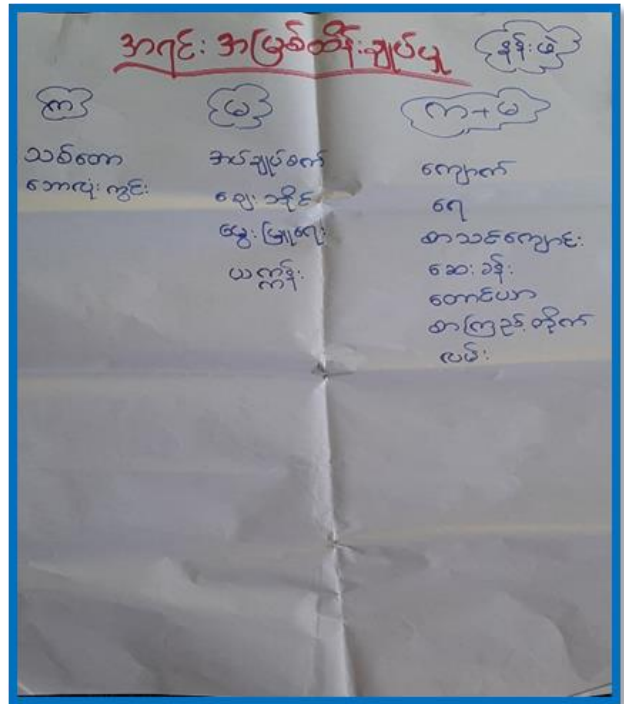 အရင်းအမြစ်ထိန်းချုပ်မှု
နန်းဖဲ
က
မ
က+မ
သစ်တော
ဘောလုံးကွင်း
အပ်ချုပ်စက်
ဈေးဆိုင်
မွေးမြူရေး
ယက္ကန်း
ကျောက်
ရေ
စာသင်ကျောင်း
ဆေးခန်း
တောင်ယာ
စာကြည့်တိုက်
လမ်း